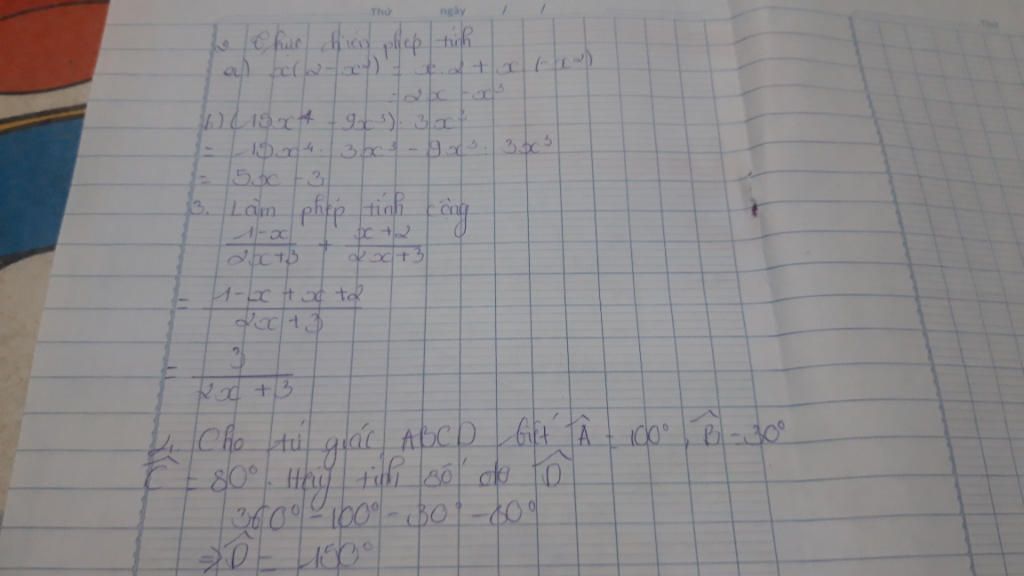 Thứ ngày / /
2. Thực hiện phép tính
a) x(2 - x²) = x.2 + x (-x²)
= 2x - x³
b) (15x⁴ - 9x³) : 3x³
= 15x⁴ : 3x³ - 9x³ : 3x³
= 5x - 3
3. Làm phép tính cộng
1-x / 2x+3 + x+2 / 2x+3
= 1-x+x+2 / 2x+3
= 3 / 2x+3
4. Cho tứ giác ABCD biết Â = 100°, B̂ = 30°
Ĉ = 80°. Hãy tính số đo D̂
360° - 100° - 30° - 80°
⇒ D̂ = 150°